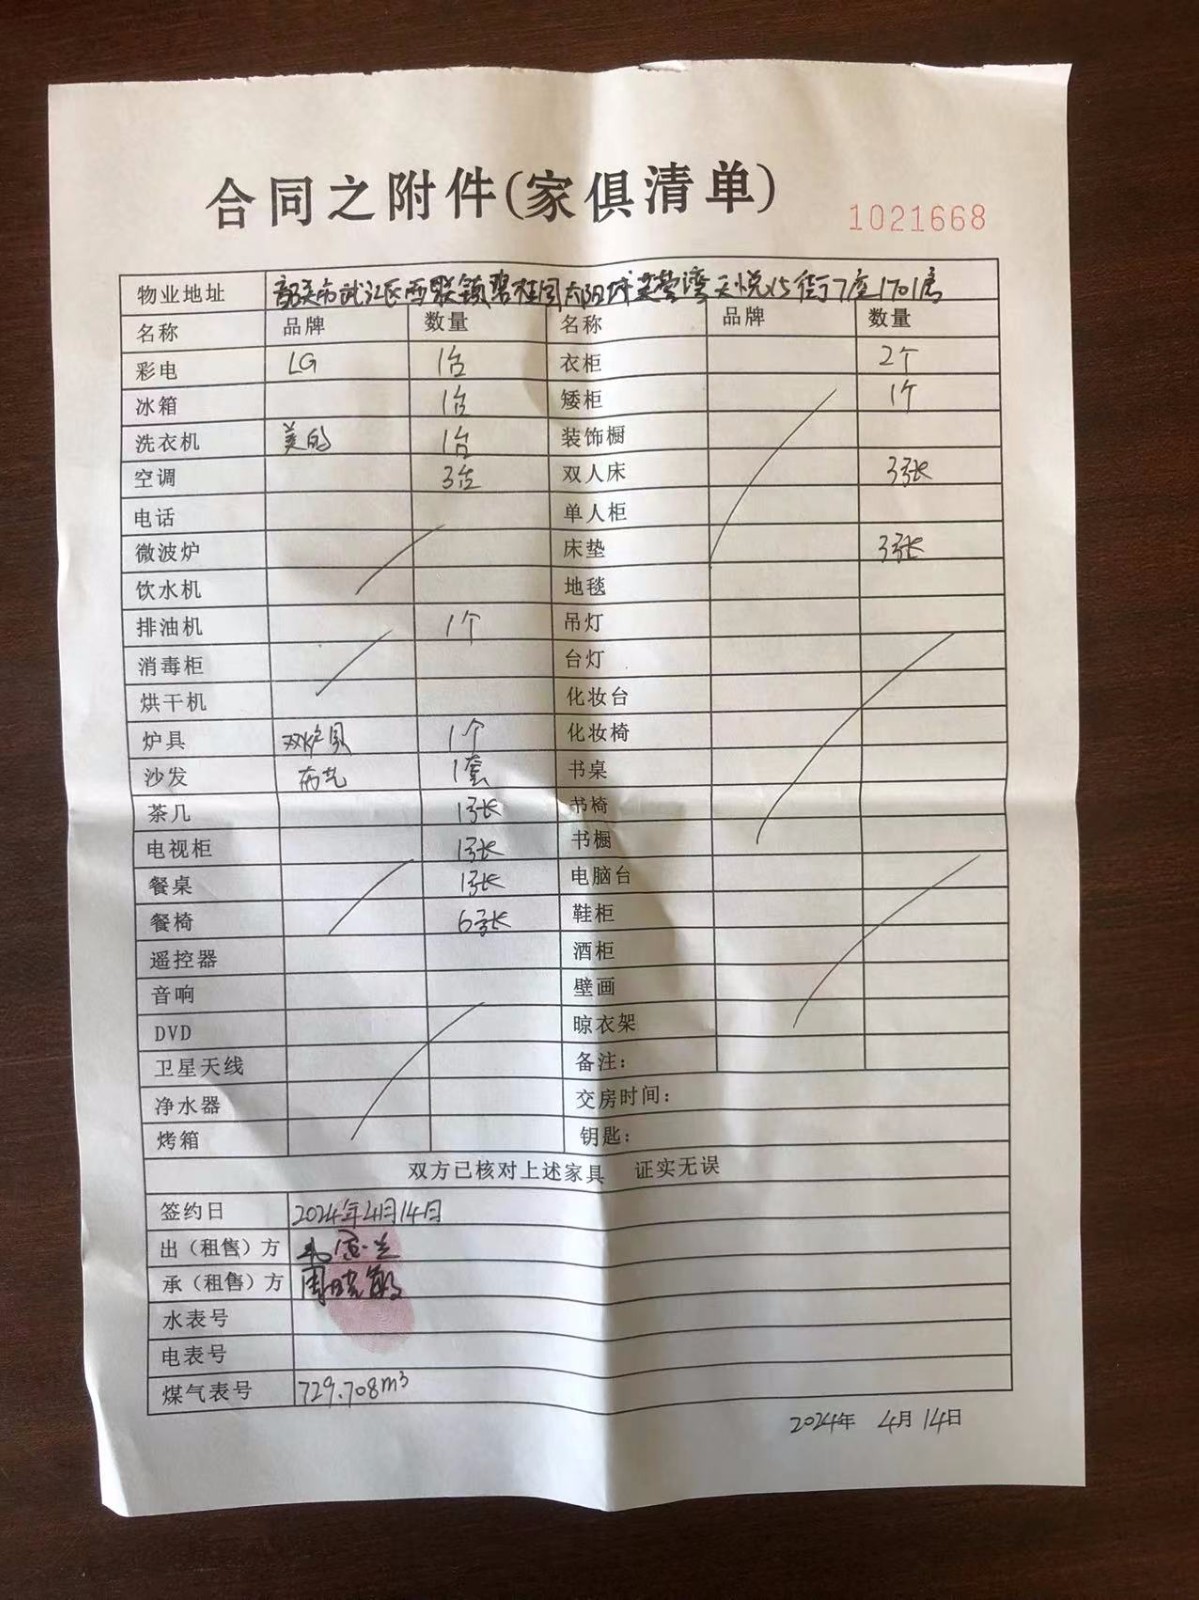 合同之附件(家俱清单)
1021668
物业地址 韶关市武江区西联镇碧桂园太阳城芙蓉湾天悦15街7座1701房
名称 品牌 数量 名称 品牌 数量
彩电 LG 1台 衣柜 2个
冰箱 1台 矮柜 1个
洗衣机 美的 1台 装饰橱
空调 3台 双人床 3张
电话 单人柜
微波炉 床垫 3张
饮水机 地毯
排油机 1个 吊灯
消毒柜 台灯
烘干机 化妆台
炉具 双炉具 1个 化妆椅
沙发 布艺 1套 书桌
茶几 1张 书椅
电视柜 1张 书橱
餐桌 1张 电脑台
餐椅 6张 鞋柜
遥控器 酒柜
音响 壁画
DVD 晾衣架
卫星天线 备注：
净水器 交房时间：
烤箱 钥匙：
双方已核对上述家具 证实无误
签约日 2024年4月14日
出（租售）方
承（租售）方 周晓敏
水表号
电表号
煤气表号 729.708m³
2024年 4月14日